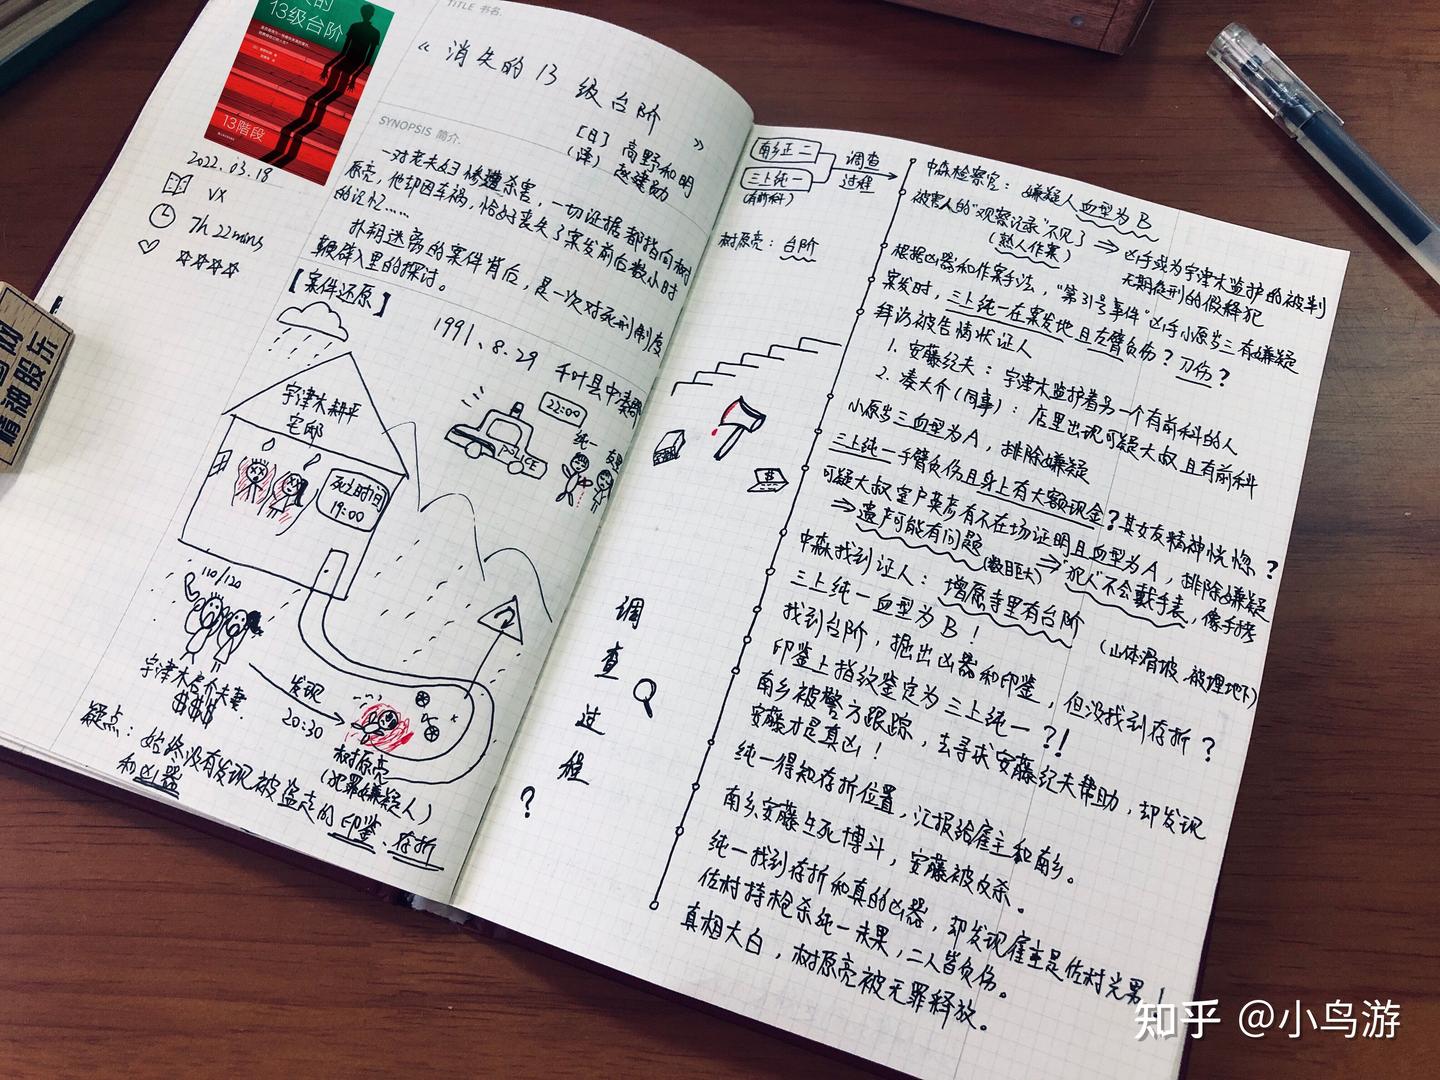 的
13级台阶
13階段
2022.03.18
VX
7h 22mins
TITLE 书名.
《消失的13级台阶》
[日] 高野和明
(译) 赵建勋
SYNOPSIS 简介.
一对老夫妇惨遭杀害，一切证据都指向树
原亮，他却因车祸，恰好丧失了案发前后数小时
的记忆……
扑朔迷离的案件背后，是一次对死刑制度
鞭辟入里的探讨。
【案件还原】
1991.8.29 千叶县中凑郡
宇津木耕平
宅邸
死亡时间
19:00
22:00
POLICE
纯一
110/120
宇津木启介夫妻
$$$
发现
20:30
树原亮
(犯罪嫌疑人)
疑点：始终没有发现被盗走的印鉴、存折
和凶器
南乡正二
三上纯一
(有前科)
调查
过程
树原亮：台阶
$
调
查
过
程
?
中森检察官：嫌疑人血型为B
被害人的"观察记录"不见了 ⇒ 凶手或为宇津木监护的被判
(熟人作案)
无期徒刑的假释犯
根据凶器和作案手法，"第31号事件"凶手小原岁三有嫌疑
案发时，三上纯一在案发地且左臂负伤？刀伤？
拜访被告情状证人
1. 安藤纪夫：宇津木监护着另一个有前科的人
2. 凑大介(同事)：店里出现可疑大叔且有前科
小原岁三血型为A，排除嫌疑
三上纯一手臂负伤且身上有大额现金？其女友精神恍惚？
可疑大叔室户英彦有不在场证明且血型为A，排除嫌疑
⇒ 遗产可能有问题(数目巨大) ⇒ "犯人"不会戴手表，像手铐
中森找到证人：增愿寺里有台阶(山体滑坡，被埋地下)
三上纯一血型为B！
找到台阶，掘出凶器和印鉴，但没找到存折？
印鉴上指纹鉴定为三上纯一？！
南乡被警方跟踪，去寻求安藤纪夫帮助，却发现
安藤才是真凶！
纯一得知存折位置，汇报给雇主和南乡。
南乡、安藤生死博斗，安藤被反杀。
纯一找到存折和真的凶器，却发现雇主是佐村光男！
佐村持枪杀纯一未果，二人皆负伤。
真相大白，树原亮被无罪释放。
精油股东
知乎 @小鸟游